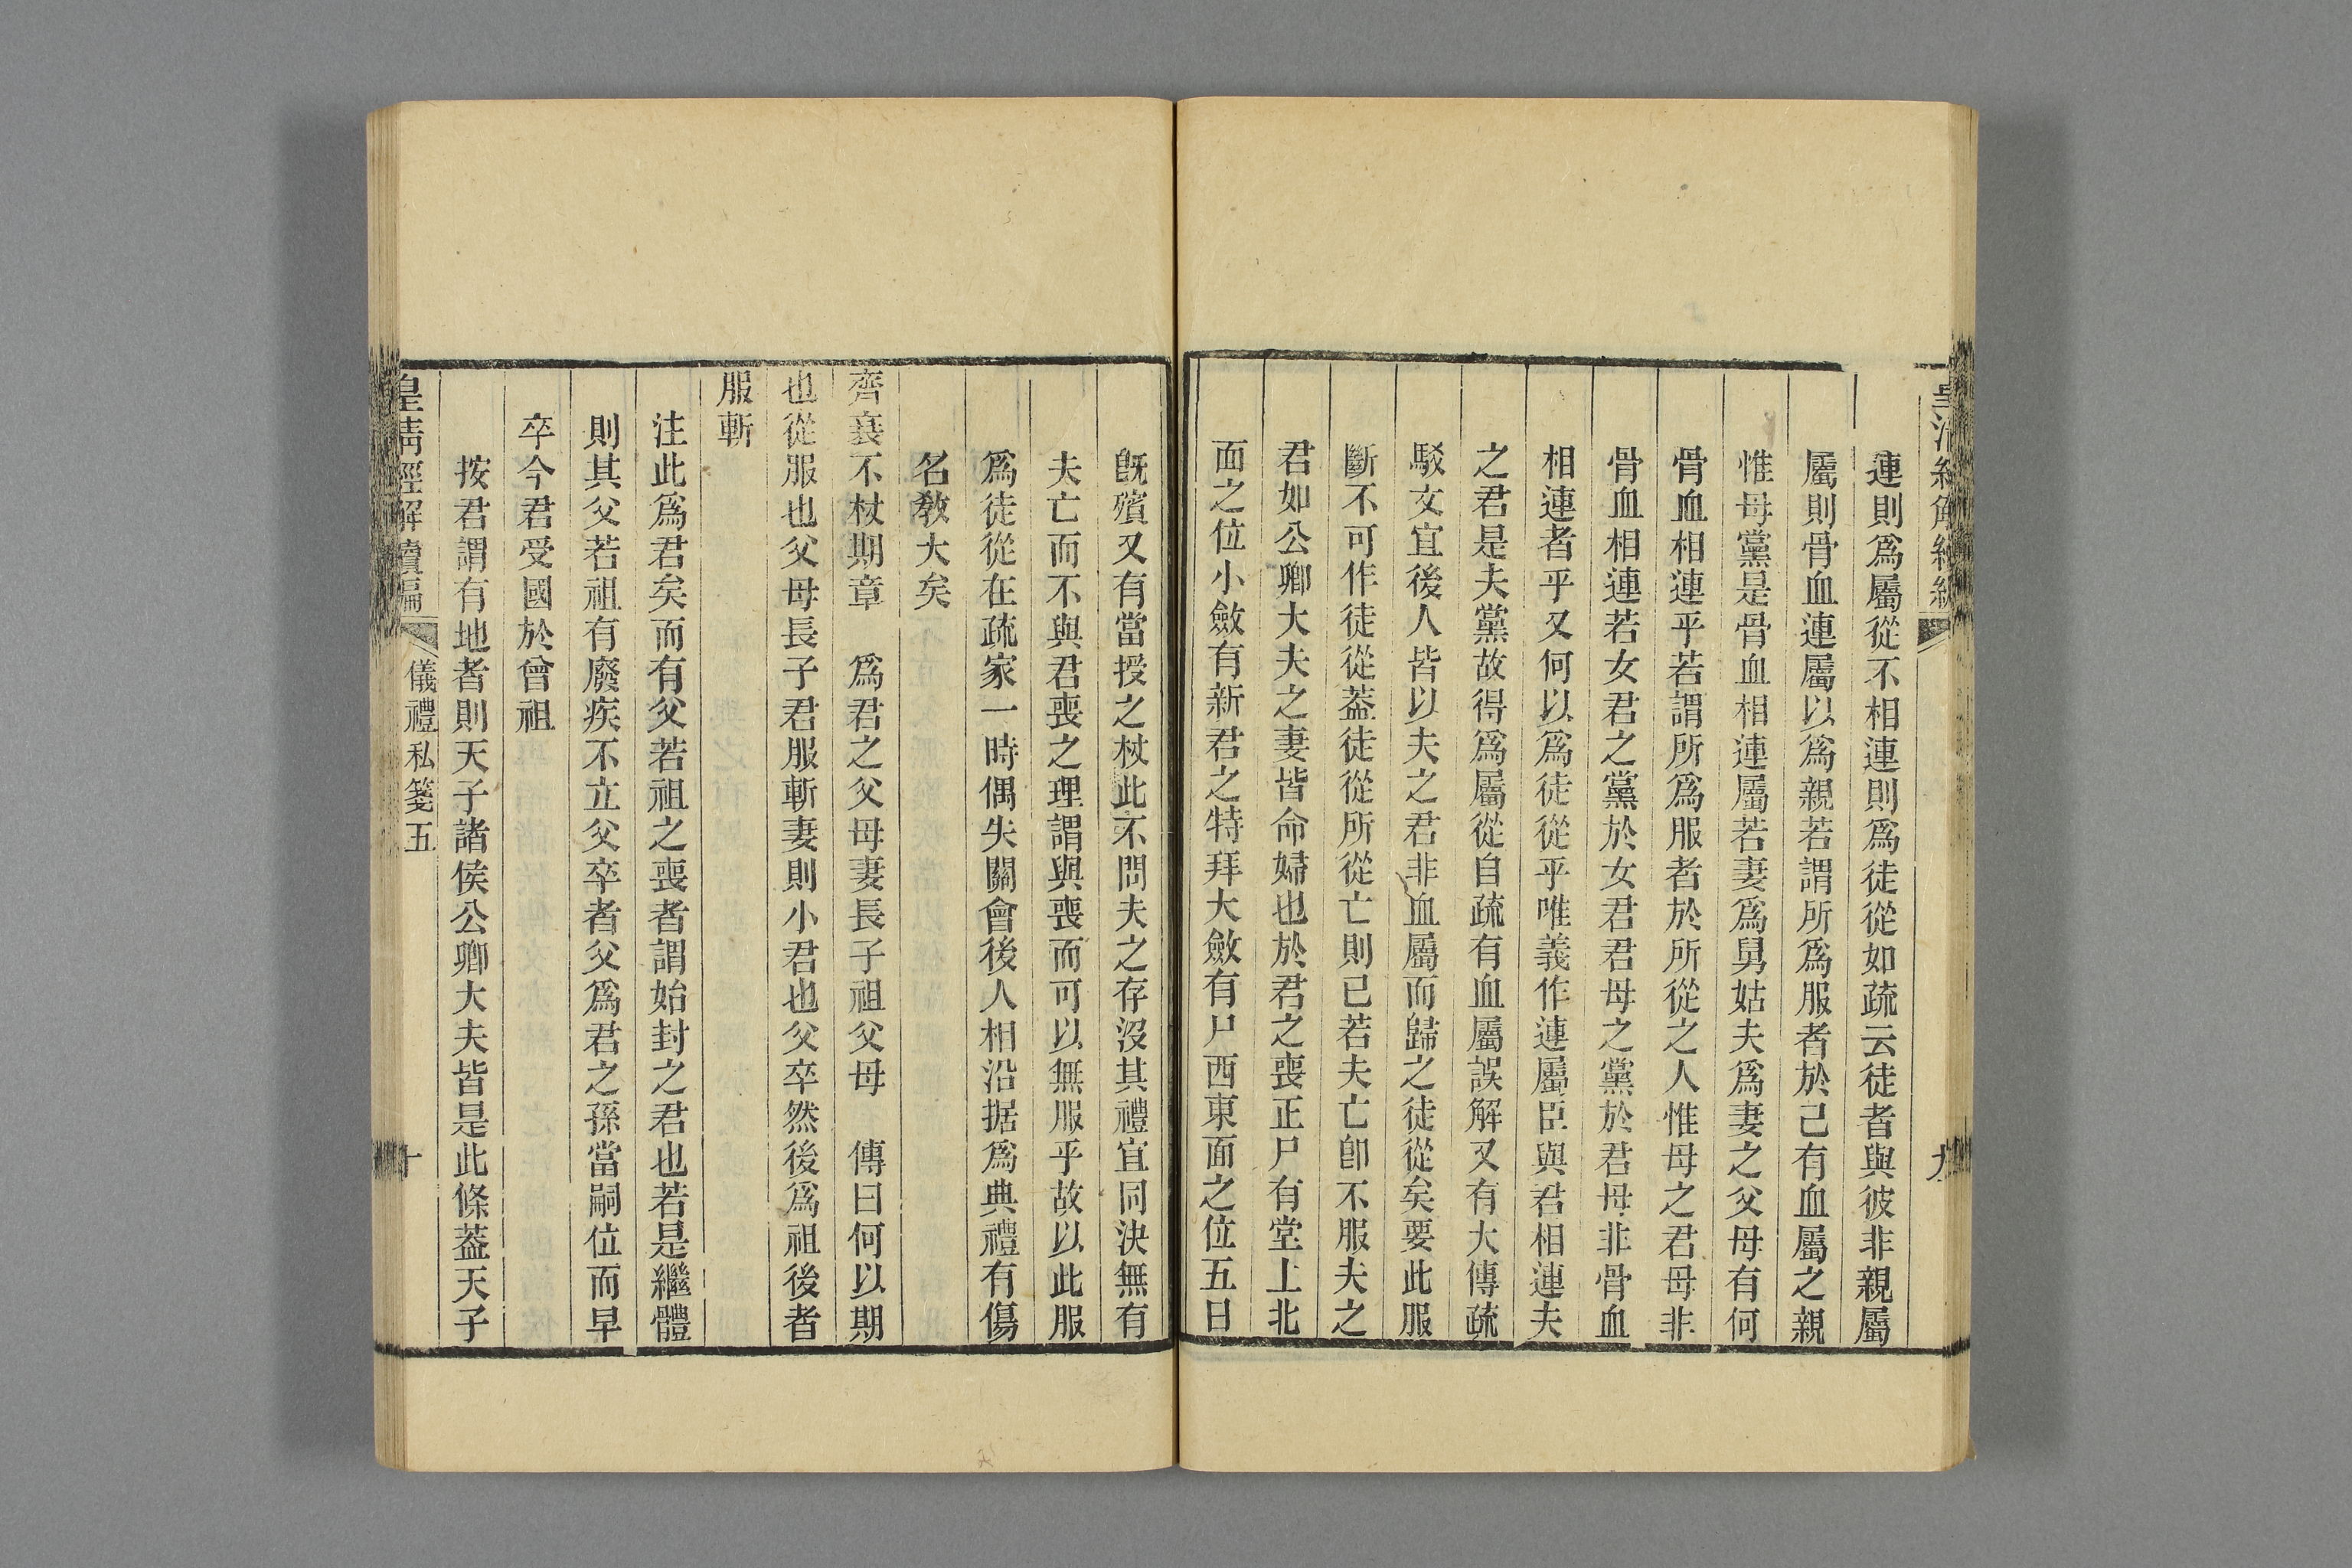 連則爲屬從不相連則爲徒從如疏云徒者與彼非親屬
屬則骨血連屬以爲親若謂所爲服者於己有血屬之親
惟母黨是骨血相連屬若妻爲舅姑夫爲妻之父母有何
骨血相連乎若謂所爲服者於所從之人惟母之君母非
骨血相連若女君之黨於女君君母之黨於君母非骨血
相連者乎又何以爲徒從乎唯義作連屬臣與君相連夫
之君是夫黨故得爲屬從自疏有血屬誤解又有大傳疏
駁文宜後人皆以夫之君非血屬而歸之徒從矣要此服
斷不可作徒從葢徒從所從亡則已若夫亡卽不服夫之
君如公卿大夫之妻皆命婦也於君之喪正尸有堂上北
面之位小斂有新君之特拜大斂有尸西東面之位五日
旣殯又有當授之杖此不問夫之存沒其禮宜同決無有
夫亡而不與君喪之理謂與喪而可以無服乎故以此服
爲徒從在疏家一時偶失關會後人相沿据爲典禮有傷
名教大矣
齊衰不杖期章　爲君之父母妻長子祖父母　傳曰何以期
也從服也父母長子君服斬妻則小君也父卒然後爲祖後者
服斬
注此爲君矣而有父若祖之喪者謂始封之君也若是繼體
則其父若祖有廢疾不立父卒者父爲君之孫當嗣位而早
卒今君受國於曾祖
按君謂有地者則天子諸侯公卿大夫皆是此條葢天子
皇淸經解續編　儀禮私箋五　十